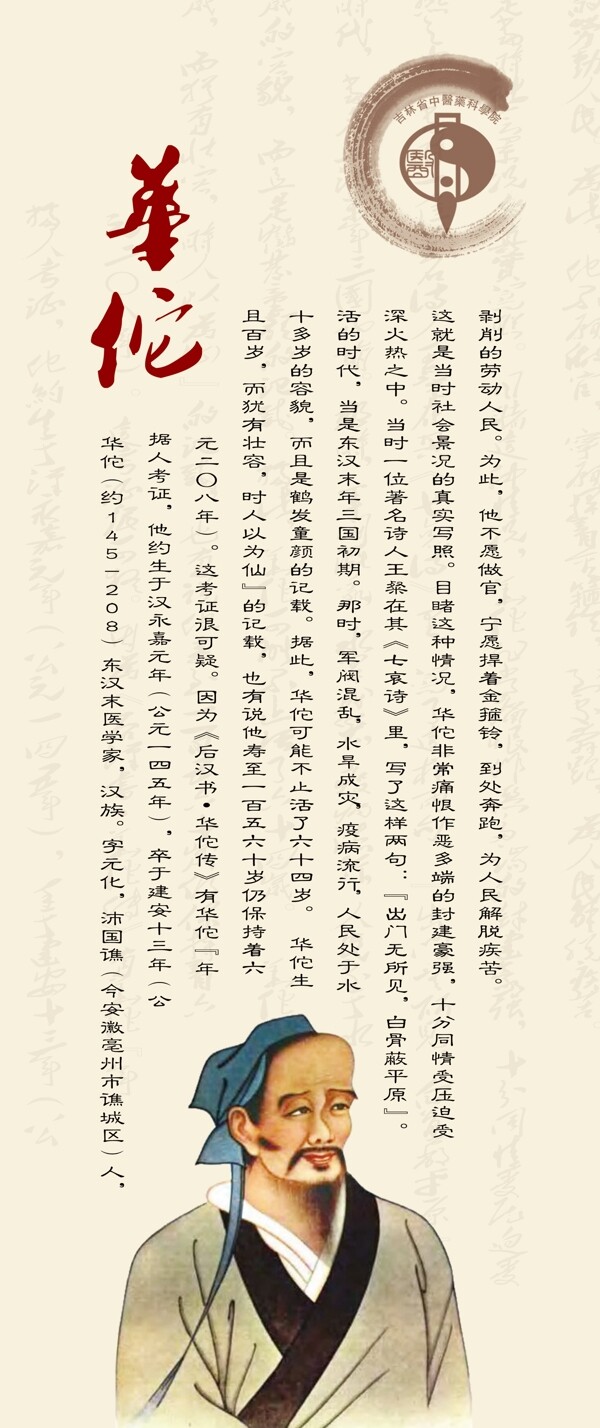 華佗
吉林省中醫藥科學院
华佗（约145－208）东汉末医学家，汉族。字元化，沛国谯（今安徽亳州市谯城区）人，
据人考证，他约生于汉永嘉元年（公元一四五年），卒于建安十三年（公
元二〇八年）。这考证很可疑。因为《后汉书·华佗传》有华佗『年
且百岁，而犹有壮容，时人以为仙』的记载，也有说他寿至一百五六十岁仍保持着六
十多岁的容貌，而且是鹤发童颜的记载。据此，华佗可能不止活了六十四岁。 华佗生
活的时代，当是东汉末年三国初期。那时，军阀混乱，水旱成灾，疫病流行，人民处于水
深火热之中。当时一位著名诗人王粲在其《七哀诗》里，写了这样两句：『出门无所见，白骨蔽平原』。
这就是当时社会景况的真实写照。目睹这种情况，华佗非常痛恨作恶多端的封建豪强，十分同情受压迫受
剥削的劳动人民。为此，他不愿做官，宁愿捍着金箍铃，到处奔跑，为人民解脱疾苦。